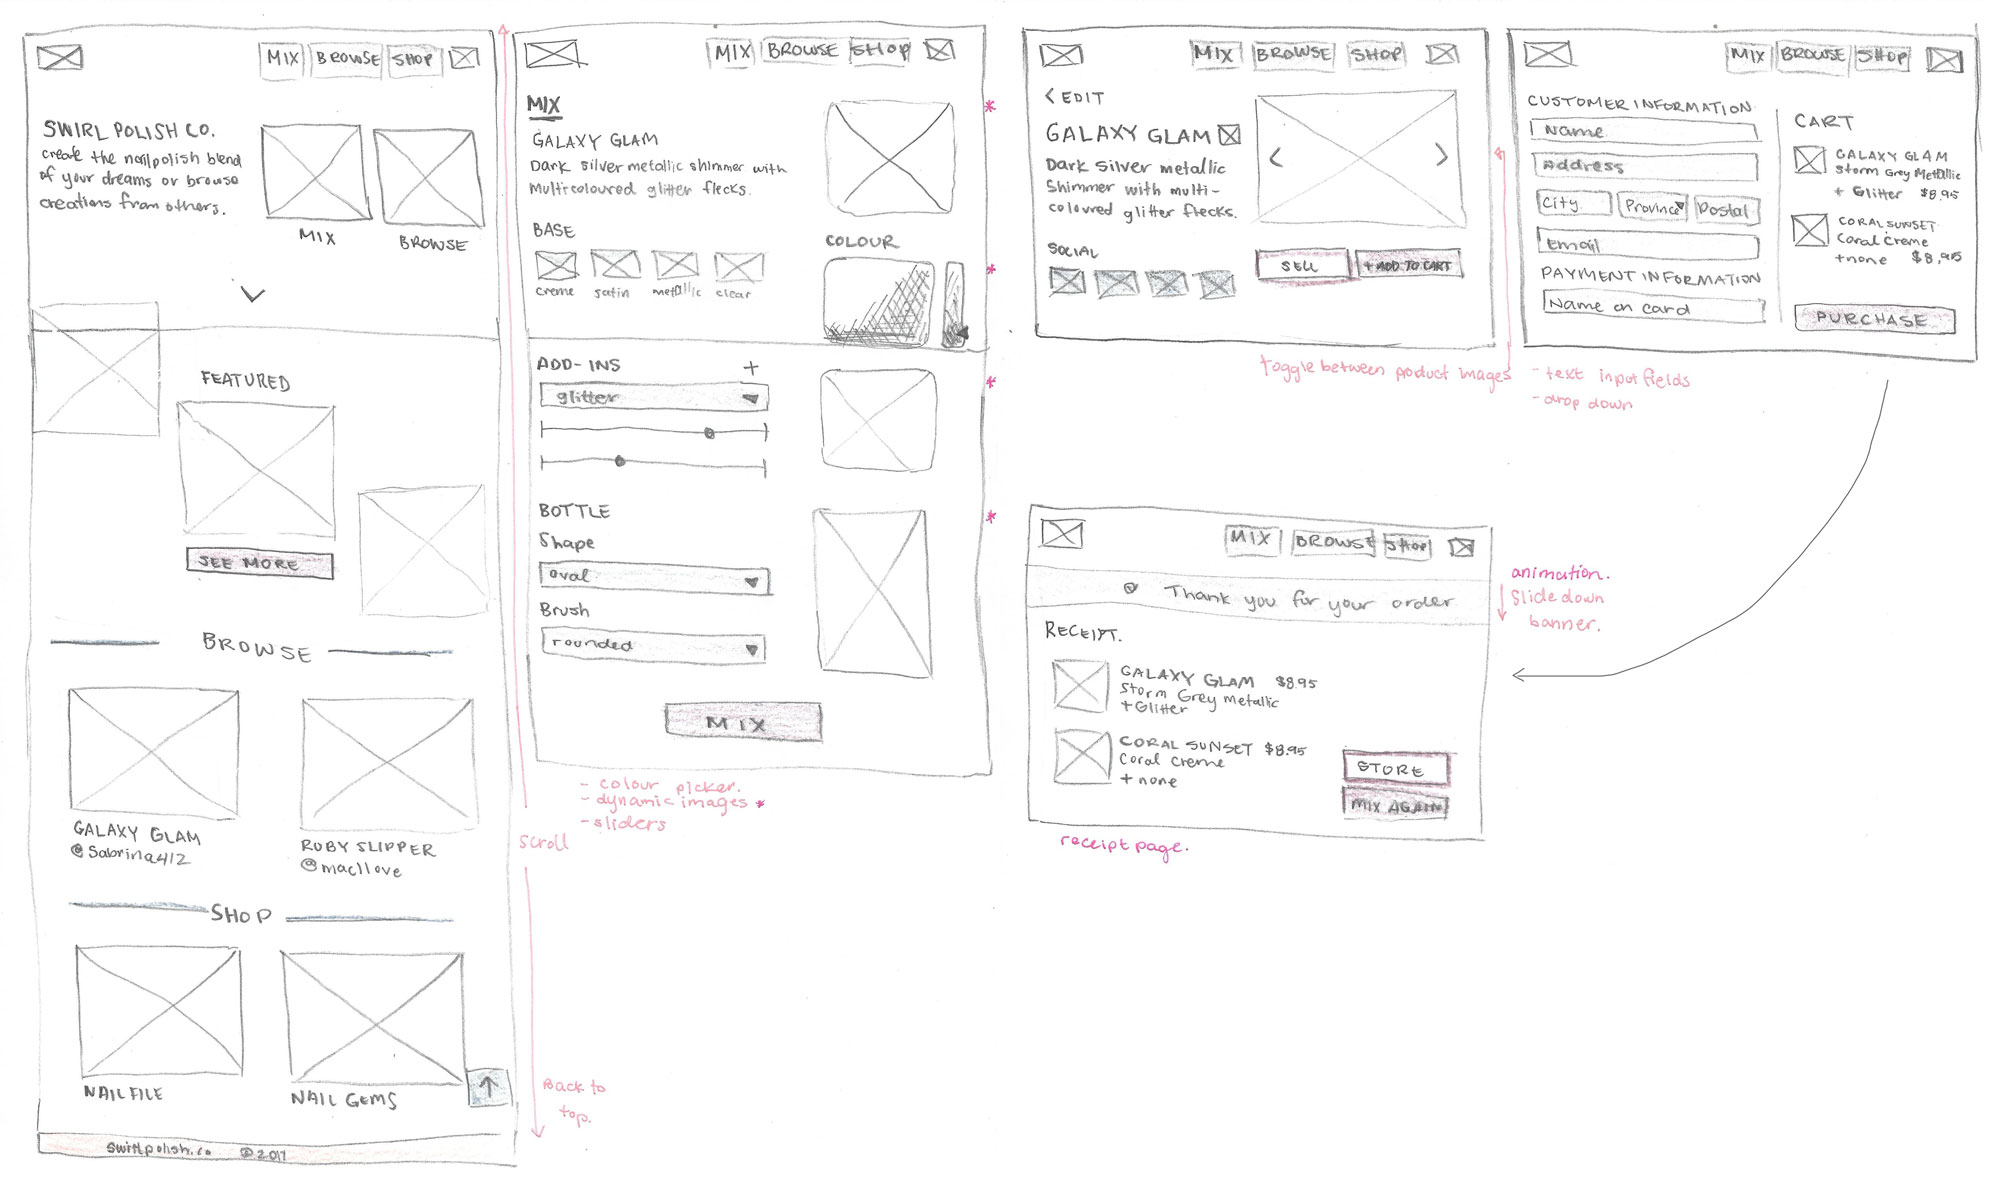 MIX BROWSE SHOP
SWIRL POLISH CO.
create the nailpolish blend
of your dreams or browse
creations from others.
MIX
BROWSE
FEATURED
SEE MORE
BROWSE
GALAXY GLAM
@Sabrina412
RUBY SLIPPER
@macllove
SHOP
NAIL FILE
NAIL GEMS
swirlpolish.co ©2017
scroll
Back to
top.
MIX BROWSE SHOP
MIX
GALAXY GLAM
Dark silver metallic shimmer with
Multicoloured glitter flecks.
BASE
creme satin metallic clear
COLOUR
ADD-INS +
glitter
BOTTLE
Shape
oval
Brush
rounded
MIX
- colour picker.
- dynamic images *
- sliders
MIX BROWSE SHOP
< EDIT
GALAXY GLAM
Dark Silver metallic
Shimmer with multi-
coloured glitter flecks.
SOCIAL
SELL
+ ADD TO CART
toggle between product images
MIX BROWSE SHOP
CUSTOMER INFORMATION
Name
Address
City Province Postal
Email
PAYMENT INFORMATION
Name on card
CART
GALAXY GLAM
Storm Grey Metallic
+ Glitter $8.95
CORAL SUNSET
Coral Creme
+none $8.95
PURCHASE
- text input fields
- drop down
MIX BROWSE SHOP
Thank you for your order
RECEIPT.
GALAXY GLAM $8.95
Storm Grey metallic
+Glitter
CORAL SUNSET $8.95
Coral Creme
+ none
STORE
MIX AGAIN
animation.
slide down
banner.
receipt page.